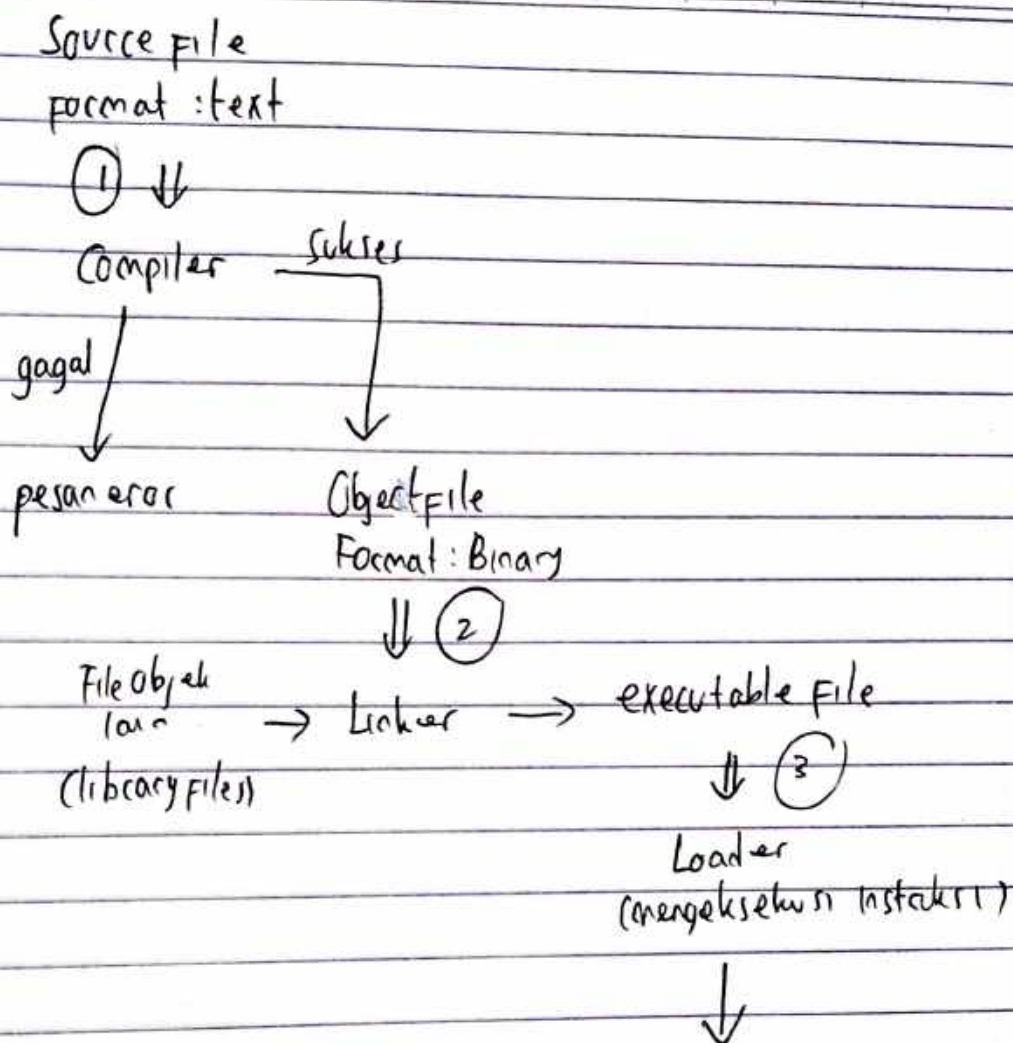 Source File
Format : text
1
Compiler
Sukses
gagal
pesan eror
Object File
Format : Binary
2
File Objek
lain
(library Files)
Linker
executable File
3
Loader
(mengeksekusi instruksi)